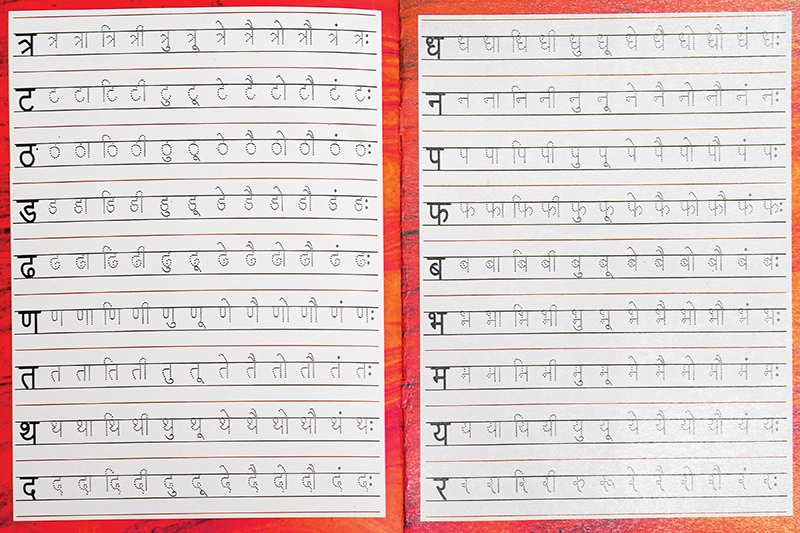 त्र त्र त्रा त्रि त्री त्रु त्रू त्रे त्रै त्रो त्रौ त्रं त्रः
ट ट टा टि टी टु टू टे टै टो टौ टं टः
ठ ठ ठा ठि ठी ठु ठू ठे ठै ठो ठौ ठं ठः
ड ड डा डि डी डु डू डे डै डो डौ डं डः
ढ ढ ढा ढि ढी ढु ढू ढे ढै ढो ढौ ढं ढः
ण ण णा णि णी णु णू णे णै णो णौ णं णः
त त ता ति ती तु तू ते तै तो तौ तं तः
थ थ था थि थी थु थू थे थै थो थौ थं थः
द द दा दि दी दु दू दे दै दो दौ दं दः
ध ध धा धि धी धु धू धे धै धो धौ धं धः
न न ना नि नी नु नू ने नै नो नौ नं नः
प प पा पि पी पु पू पे पै पो पौ पं पः
फ फ फा फि फी फु फू फे फै फो फौ फं फः
ब ब बा बि बी बु बू बे बै बो बौ बं बः
भ भ भा भि भी भु भू भे भै भो भौ भं भः
म म मा मि मी मु मू मे मै मो मौ मं मः
य य या यि यी यु यू ये यै यो यौ यं यः
र र रा रि री रु रू रे रै रो रौ रं रः